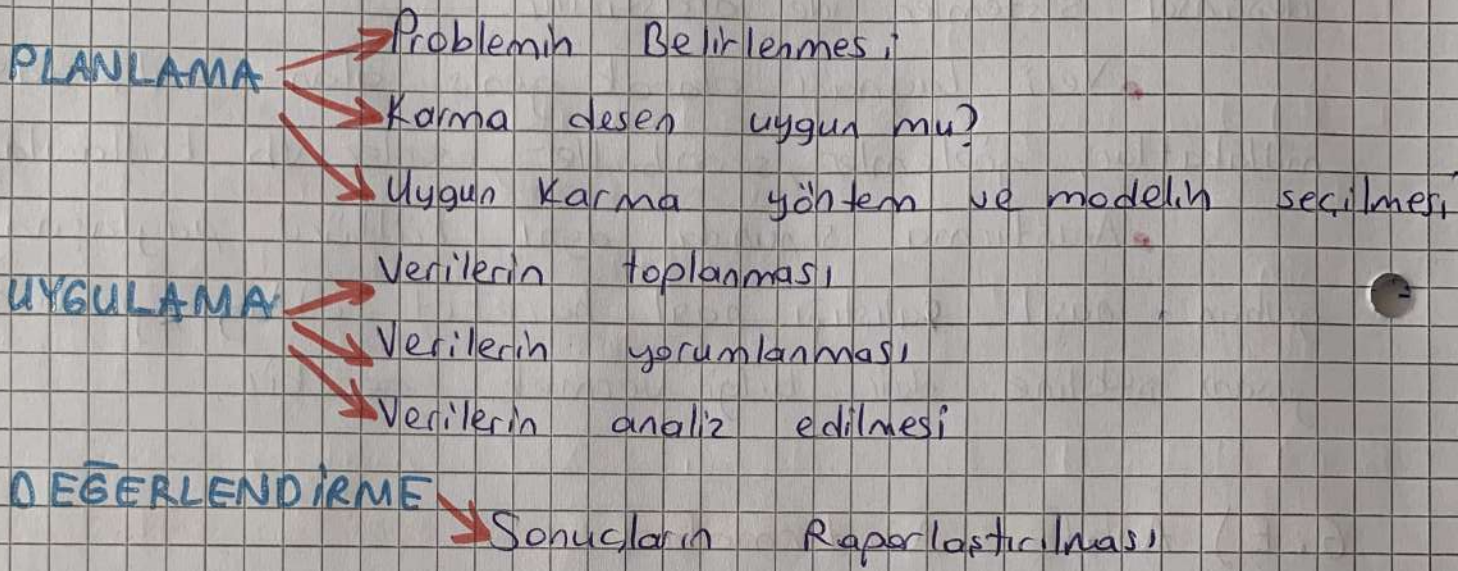 PLANLAMA
Problemin Belirlenmesi
Karma desen uygun mu?
Uygun Karma yöntem ve modelin seçilmesi
UYGULAMA
Verilerin toplanması
Verilerin yorumlanması
Verilerin analiz edilmesi
DEĞERLENDİRME
Sonuçların Raporlaştırılması